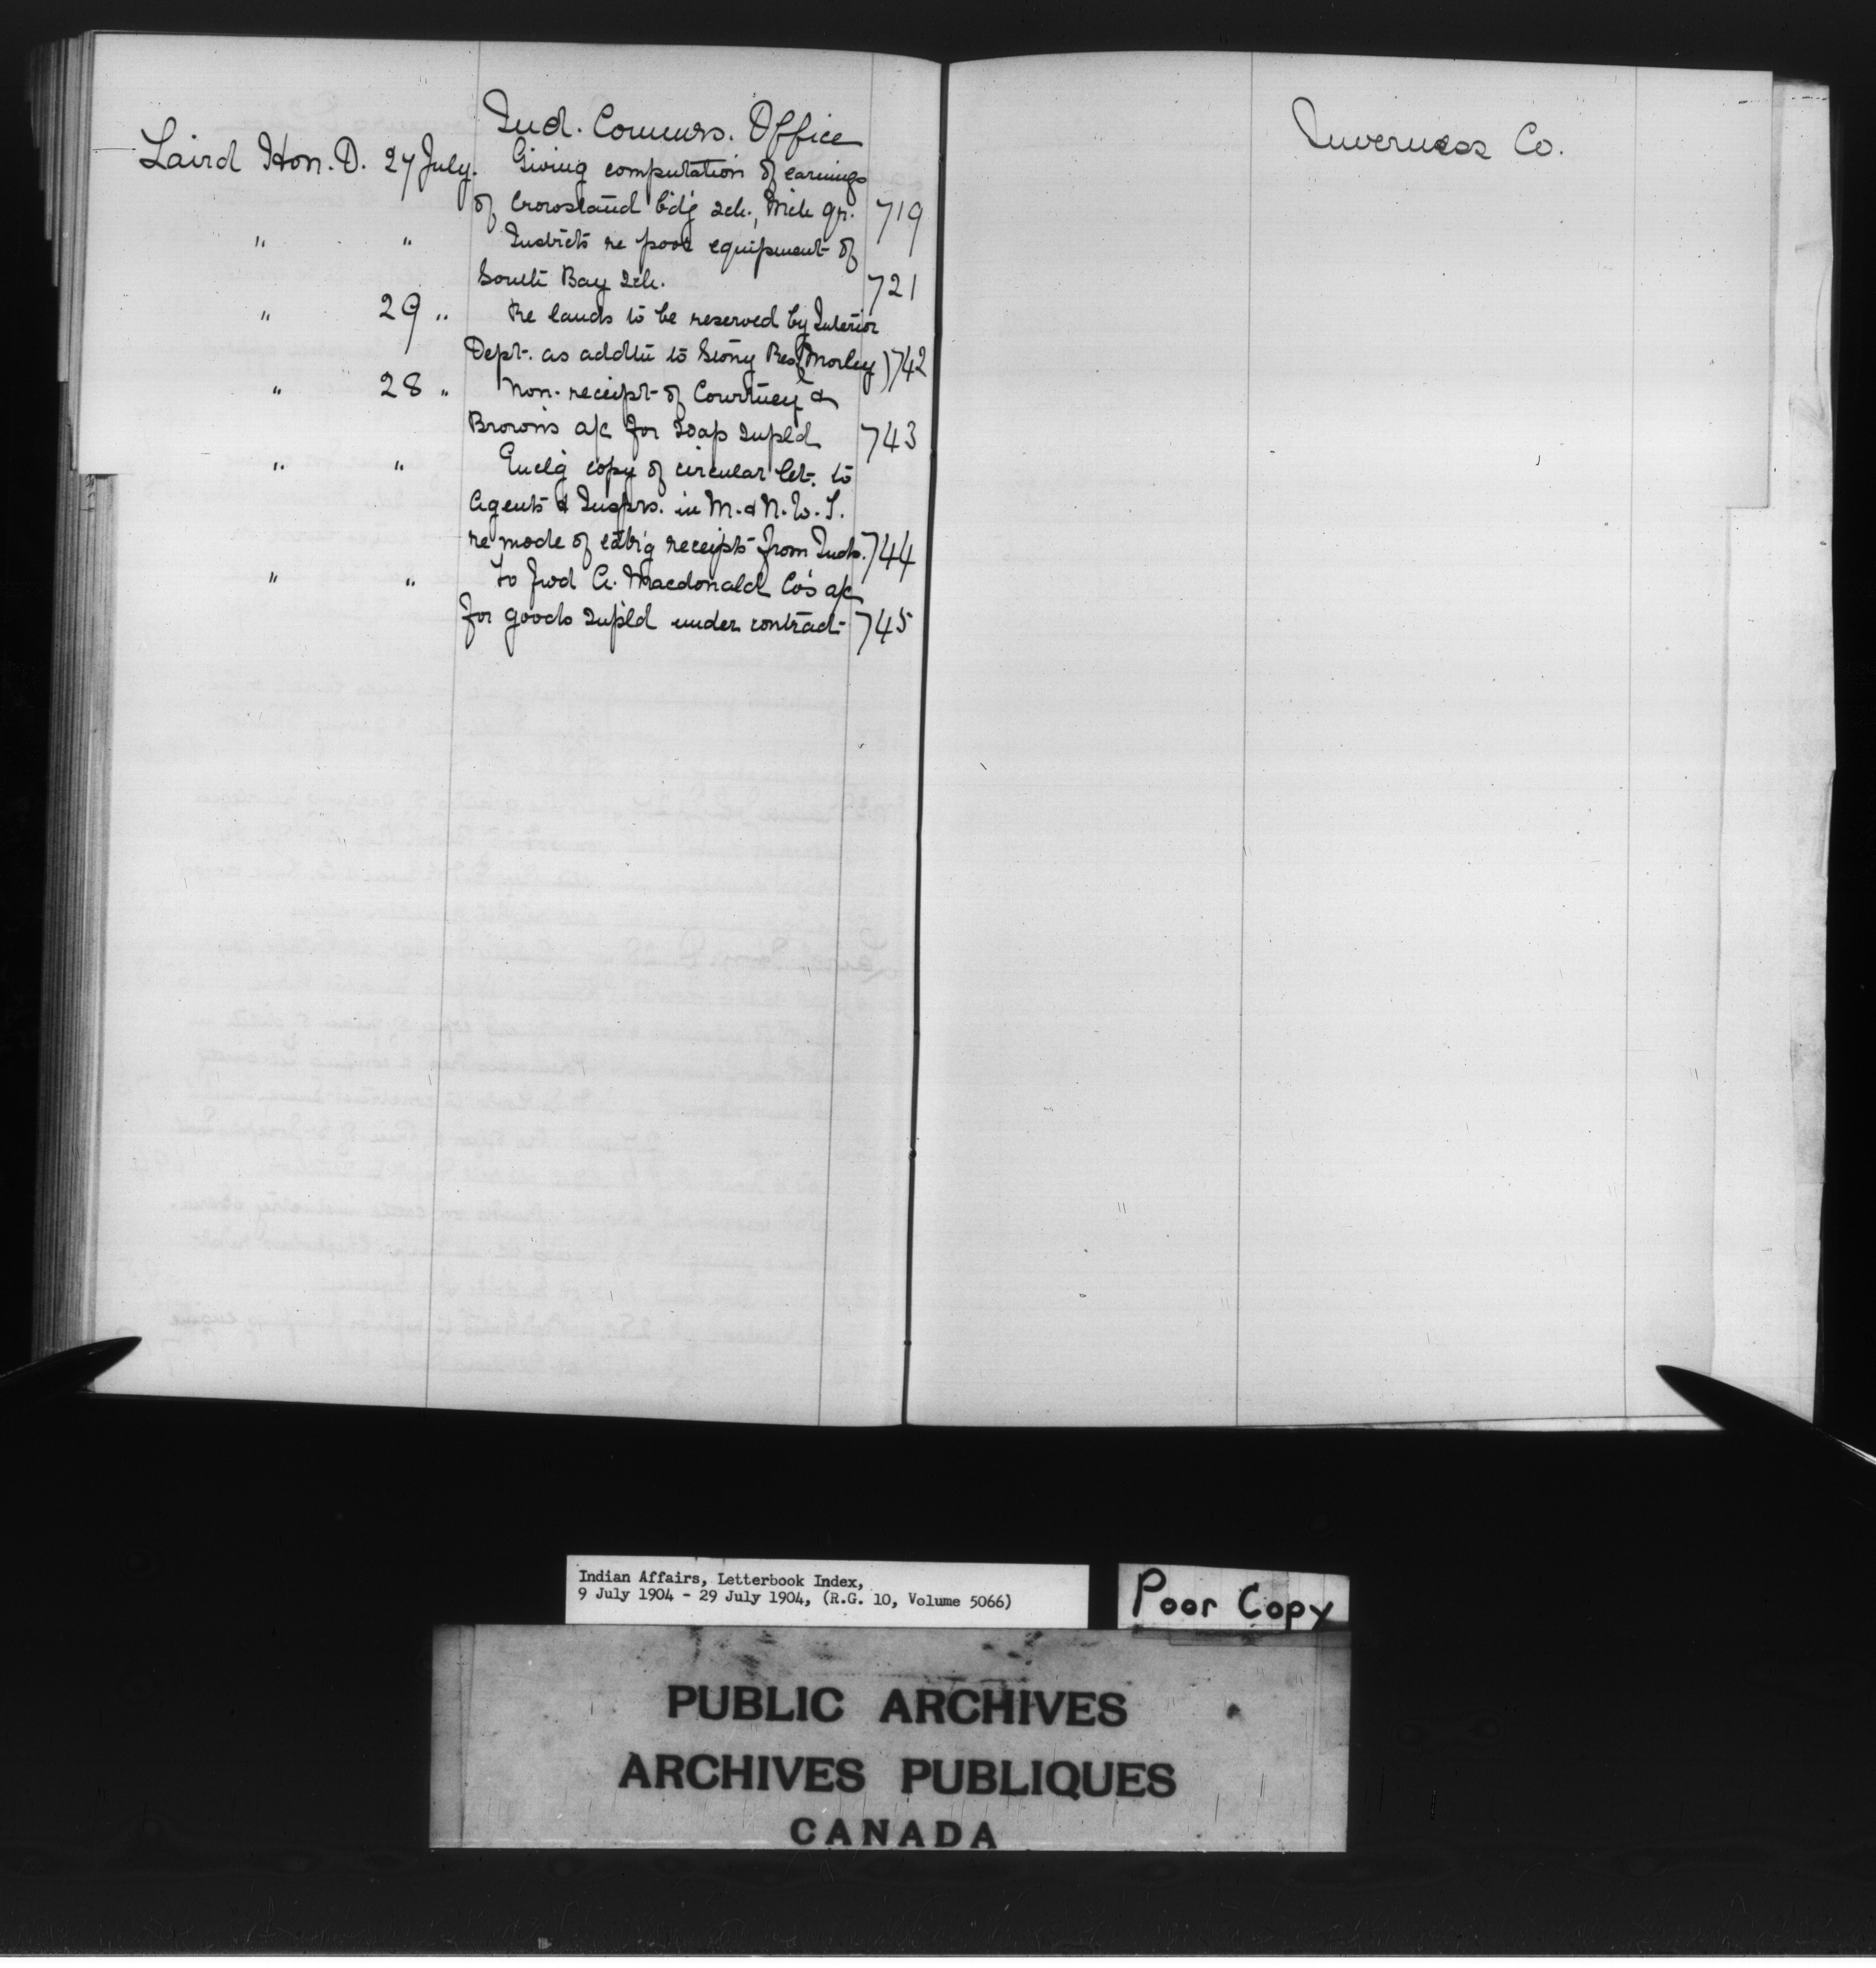 Ind. Commrs. Office
Laird Hon. D. 27 July. Giving computation of earnings
of Crowstand b'd'g sch., Mch qr. 719
" " Instrcts re poor equipment of
South Bay Sch. 721
" 29 " Re lands to be reserved by Interior
Dept. as addtn to Stony Res (Morley) 742
" 28 " Non-receipt of Courtney &
Brown's a/c for soap supld 743
" " Encl'g copy of circular let. to
Agents & Insprs. in M. & N. W. T.
re mode of receipts from Inds. 744
" " To fwd A. Macdonald Co's a/c
for goods supl'd under contract 745
Inverness Co.
Indian Affairs, Letterbook Index,
9 July 1904 - 29 July 1904, (R.G. 10, Volume 5066)
Poor Copy
PUBLIC ARCHIVES
ARCHIVES PUBLIQUES
CANADA